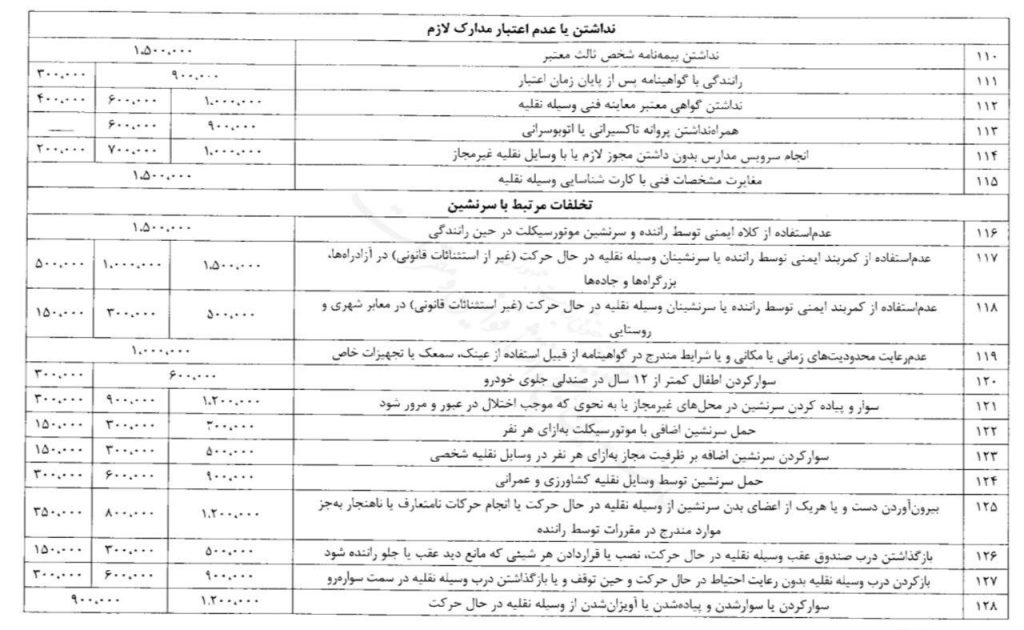 نداشتن یا عدم اعتبار مدارک لازم
۱۱۰ نداشتن بیمه‌نامه شخص ثالث معتبر ۱.۵۰۰,۰۰۰
۱۱۱ رانندگی با گواهینامه پس از پایان زمان اعتبار ۹۰۰,۰۰۰ ۳۰۰,۰۰۰
۱۱۲ نداشتن گواهی معتبر معاینه فنی وسیله نقلیه ۱.۰۰۰,۰۰۰ ۶۰۰,۰۰۰ ۴۰۰,۰۰۰
۱۱۳ همراه‌نداشتن پروانه تاکسیرانی یا اتوبوسرانی ۹۰۰,۰۰۰ ۶۰۰,۰۰۰ ——
۱۱۴ انجام سرویس مدارس بدون داشتن مجوز لازم یا با وسایل نقلیه غیرمجاز ۱.۰۰۰,۰۰۰ ۷۰۰,۰۰۰ ۲۰۰,۰۰۰
۱۱۵ مغایرت مشخصات فنی با کارت شناسایی وسیله نقلیه ۱.۵۰۰,۰۰۰
تخلفات مرتبط با سرنشین
۱۱۶ عدم‌استفاده از کلاه ایمنی توسط راننده و سرنشین موتورسیکلت در حین رانندگی ۱.۵۰۰,۰۰۰
۱۱۷ عدم‌استفاده از کمربند ایمنی توسط راننده یا سرنشینان وسیله نقلیه در حال حرکت (غیر از استثنائات قانونی) در آزادراه‌ها، ۱.۵۰۰,۰۰۰ ۱,۰۰۰,۰۰۰ ۵۰۰,۰۰۰
بزرگراه‌ها و جاده‌ها
۱۱۸ عدم‌استفاده از کمربند ایمنی توسط راننده یا سرنشینان وسیله نقلیه در حال حرکت (غیر استثنائات قانونی) در معابر شهری و ۵۰۰,۰۰۰ ۳۰۰,۰۰۰ ۱۵۰,۰۰۰
روستایی
۱۱۹ عدم‌رعایت محدودیت‌های زمانی یا مکانی و یا شرایط مندرج در گواهینامه از قبیل استفاده از عینک، سمعک یا تجهیزات خاص ۱,۰۰۰,۰۰۰
۱۲۰ سوارکردن اطفال کمتر از ۱۲ سال در صندلی جلوی خودرو ۶۰۰,۰۰۰ ۳۰۰,۰۰۰
۱۲۱ سوار و پیاده کردن سرنشین در محل‌های غیرمجاز یا به نحوی که موجب اختلال در عبور و مرور شود ۱.۲۰۰,۰۰۰ ۹۰۰,۰۰۰ ۳۰۰,۰۰۰
۱۲۲ حمل سرنشین اضافی با موتورسیکلت به‌ازای هر نفر ۳۰۰,۰۰۰ ۳۰۰,۰۰۰ ۱۵۰,۰۰۰
۱۲۳ سوارکردن سرنشین اضافه بر ظرفیت مجاز به‌ازای هر نفر در وسایل نقلیه شخصی ۵۰۰,۰۰۰ ۳۰۰,۰۰۰ ۱۵۰,۰۰۰
۱۲۴ حمل سرنشین توسط وسایل نقلیه کشاورزی و عمرانی ۹۰۰,۰۰۰ ۶۰۰,۰۰۰ ۳۰۰,۰۰۰
۱۲۵ بیرون‌آوردن دست و یا هریک از اعضای بدن سرنشین از وسیله نقلیه در حال حرکت یا انجام حرکات نامتعارف یا ناهنجار به‌جز ۱.۲۰۰,۰۰۰ ۸۰۰,۰۰۰ ۳۵۰,۰۰۰
موارد مندرج در مقررات توسط راننده
۱۲۶ بازگذاشتن درب صندوق عقب وسیله نقلیه در حال حرکت، نصب یا قراردادن هر شیئی که مانع دید عقب یا جلو راننده شود ۵۰۰,۰۰۰ ۳۰۰,۰۰۰ ۱۵۰,۰۰۰
۱۲۷ بازکردن درب وسیله نقلیه بدون رعایت احتیاط در حال حرکت و حین توقف و یا بازگذاشتن درب وسیله نقلیه در سمت سواره‌رو ۹۰۰,۰۰۰ ۶۰۰,۰۰۰ ۳۰۰,۰۰۰
۱۲۸ سوارکردن یا سوارشدن و پیاده‌شدن یا آویزان‌شدن از وسیله نقلیه در حال حرکت ۱.۲۰۰,۰۰۰ ۹۰۰,۰۰۰